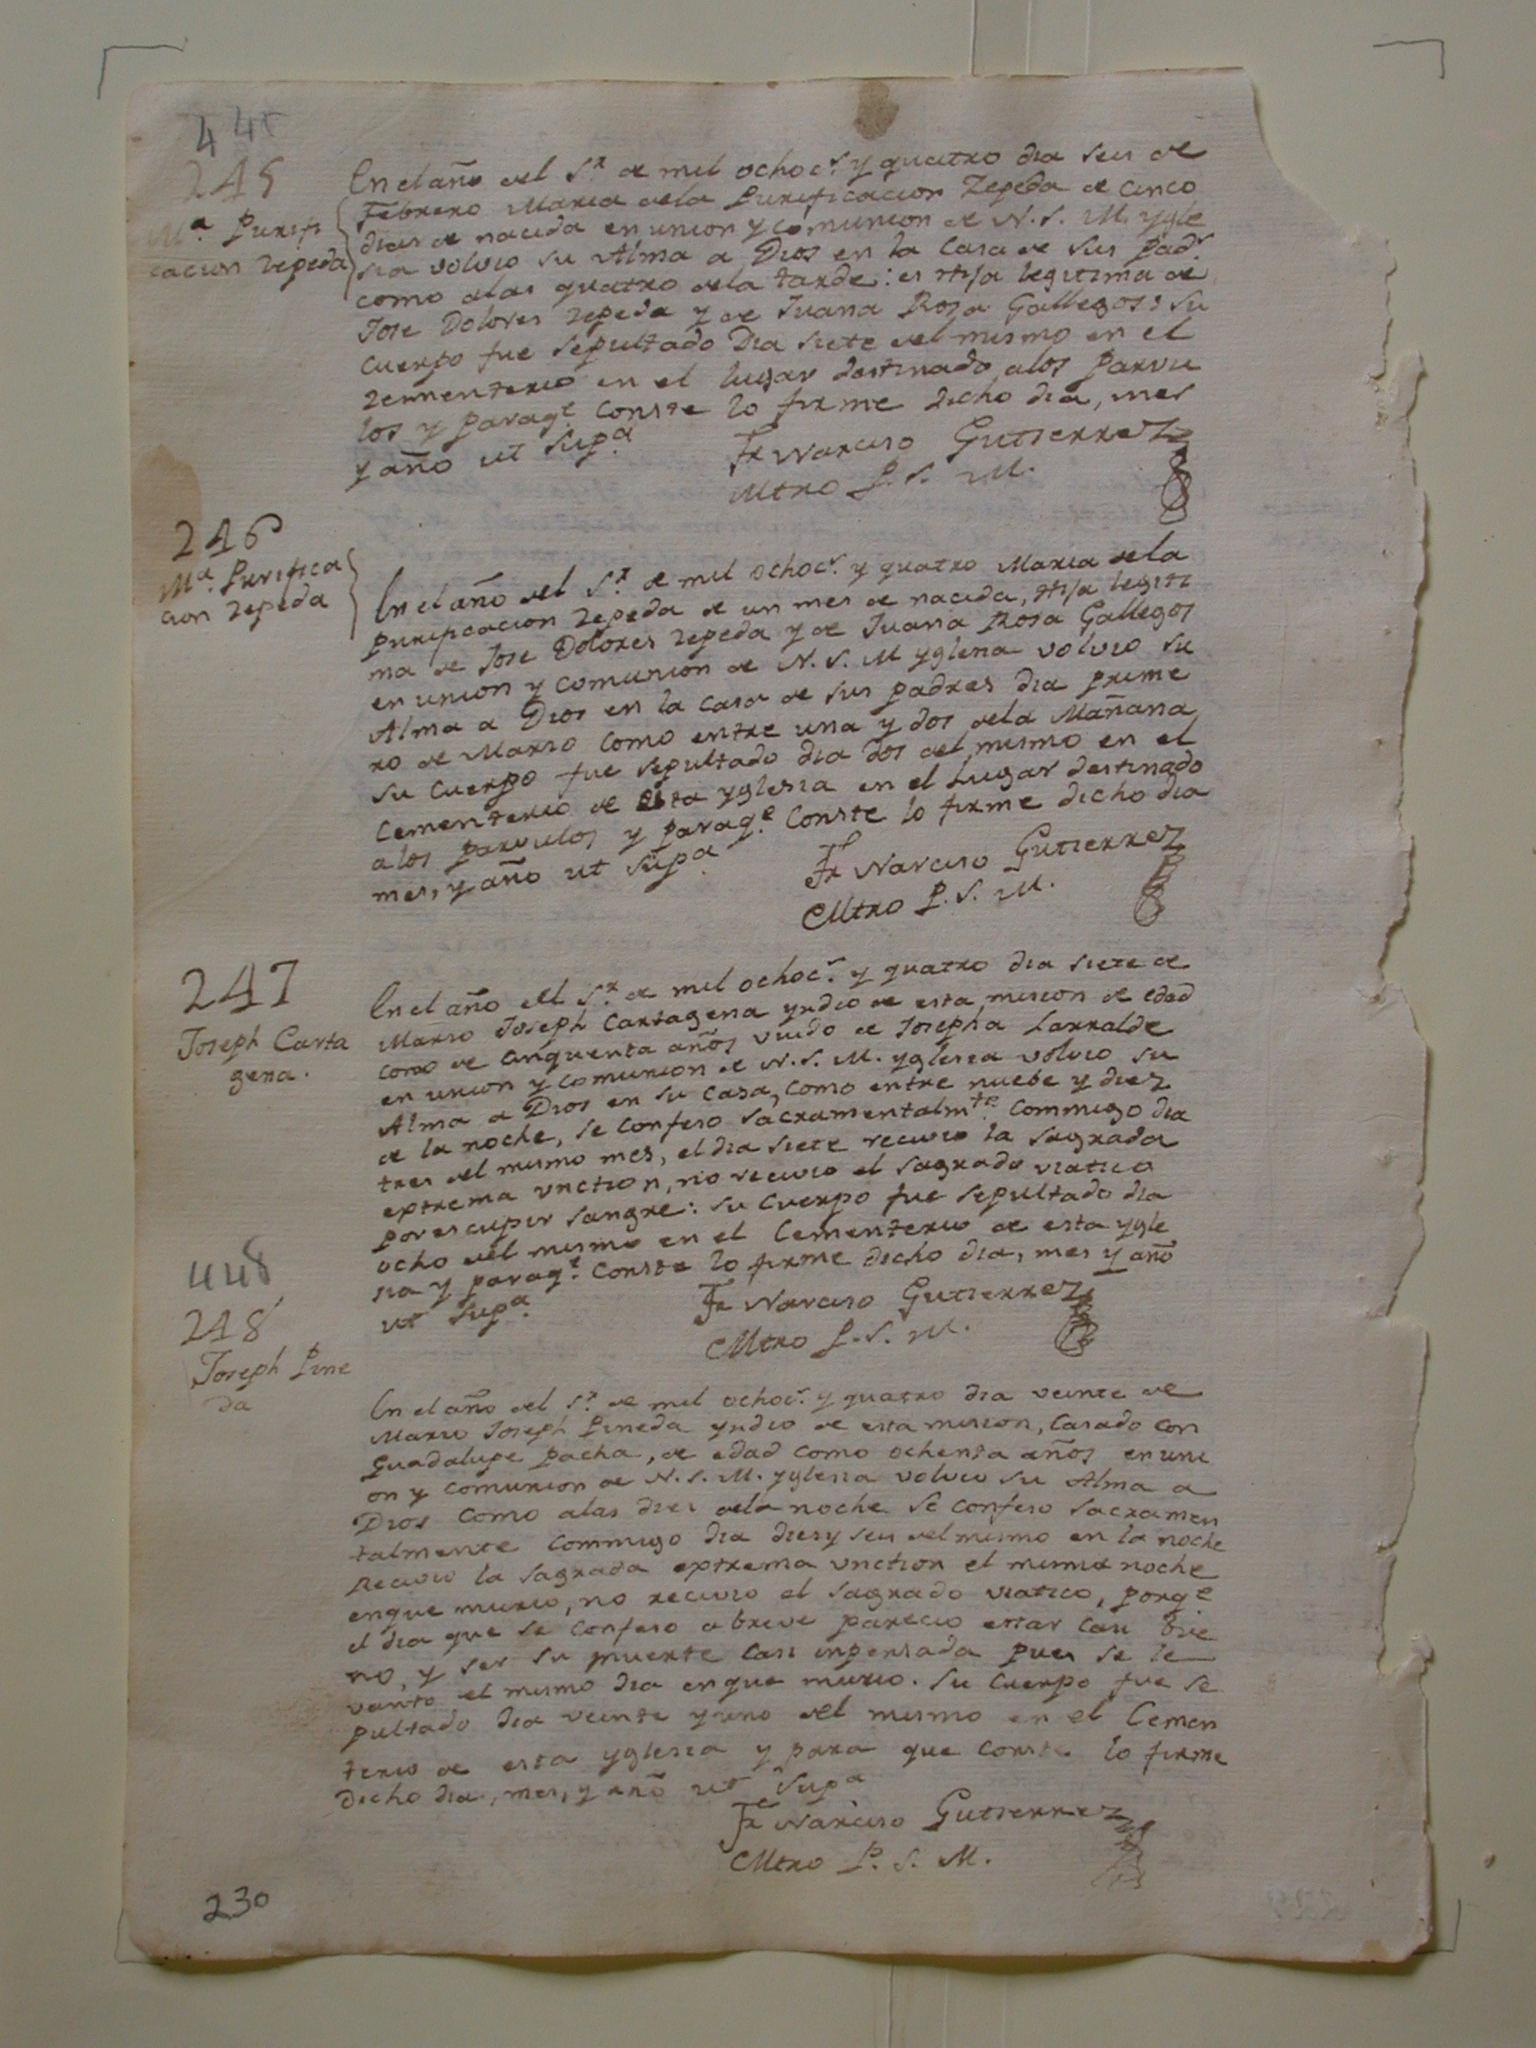 4 44
245
En el año del S.r de mil ochoc.s y quatro dia seis de
Febrero Maria dela Purificacion Zepeda de cinco
M.a Purifi
cacion Zepeda
dias de nacida en union y comunion de N. S. M. ygle
sia volvio su Alma a Dios en la Casa de sus Pad.s
como alas quatro dela tarde: es Hija legitima de
Jose Dolores Zepeda y de Juana Rosa Gallegos: su
Cuerpo fue sepultado Dia siete del mismo en el
Zementerio en el lugar destinado alos Parvu
los y paraq.e Conste lo firme dicho dia, mes
y año ut Sup.a
Fr Narciso Gutierrez
Mtro P. S. M.
246
M.a Purifica
cion Zepeda
En el año del S.r de mil ochoc.s y quatro Maria dela
Purificacion Zepeda de un mes de nacida, Hija legiti
ma de Jose Dolores Zepeda y de Juana Rosa Gallegos
en union y comunion de N. S. M yglesia volvio su
Alma a Dios en la Casa de sus padres dia prime
ro de Marzo como entre una y dos dela Mañana
su Cuerpo fue sepultado dia dos del mismo en el
Cementerio de Esta yglesia en el Lugar destinado
alos parvulos y paraq.e Conste lo firme dicho dia
mes, y año ut Sup.a
Fr Narciso Gutierrez
Mtro P. S. M.
247
Joseph Carta
gena.
En el año del S.r de mil ochoc.s y quatro dia siete de
Marzo Joseph Cartagena yndio de esta mision de edad
como de cinquenta años viudo de Josepha Larralde
en union y comunion de N. S. M. yglesia volvio su
Alma a Dios en su Casa, como entre nuebe y diez
de la noche, se confeso sacramentalm.te commigo dia
tres del mismo mes, el dia siete recivio la sagrada
extrema vnction, no recivio el sagrado viatico
por escupir sangre: su Cuerpo fue sepultado dia
ocho del mismo en el Cementerio de esta ygle
sia y paraq.e Conste lo firme dicho dia, mes y año
ut Sup.a
Fr Narciso Gutierrez
Mtro P. S. M.
448
248
Joseph Pine
da
En el año del S.r de mil ochoc.s y quatro dia veinte de
Marzo Joseph Pineda yndio de esta mision, Casado con
Guadalupe Pacha, de edad como ochenta años en uni
on y comunion de N. S. M. yglesia volvio su Alma a
Dios como alas dies dela noche se confeso sacramen
talmente commigo dia dies y seis del mismo en la noche
Recivio la sagrada extrema vnction el misma noche
enque murio, no recivio el sagrado viatico, porq.e
el dia que se confeso a breve parecio estar casi bue
no, y ser su muerte casi inpensada pues se le
vanto el mismo dia enque murio. Su Cuerpo fue se
pultado dia veinte y uno del mismo en el Cemen
terio de esta yglesia y para que conste lo firme
dicho dia, mes, y año ut Sup.a
Fr Narciso Gutierrez
Mtro P. S. M.
230